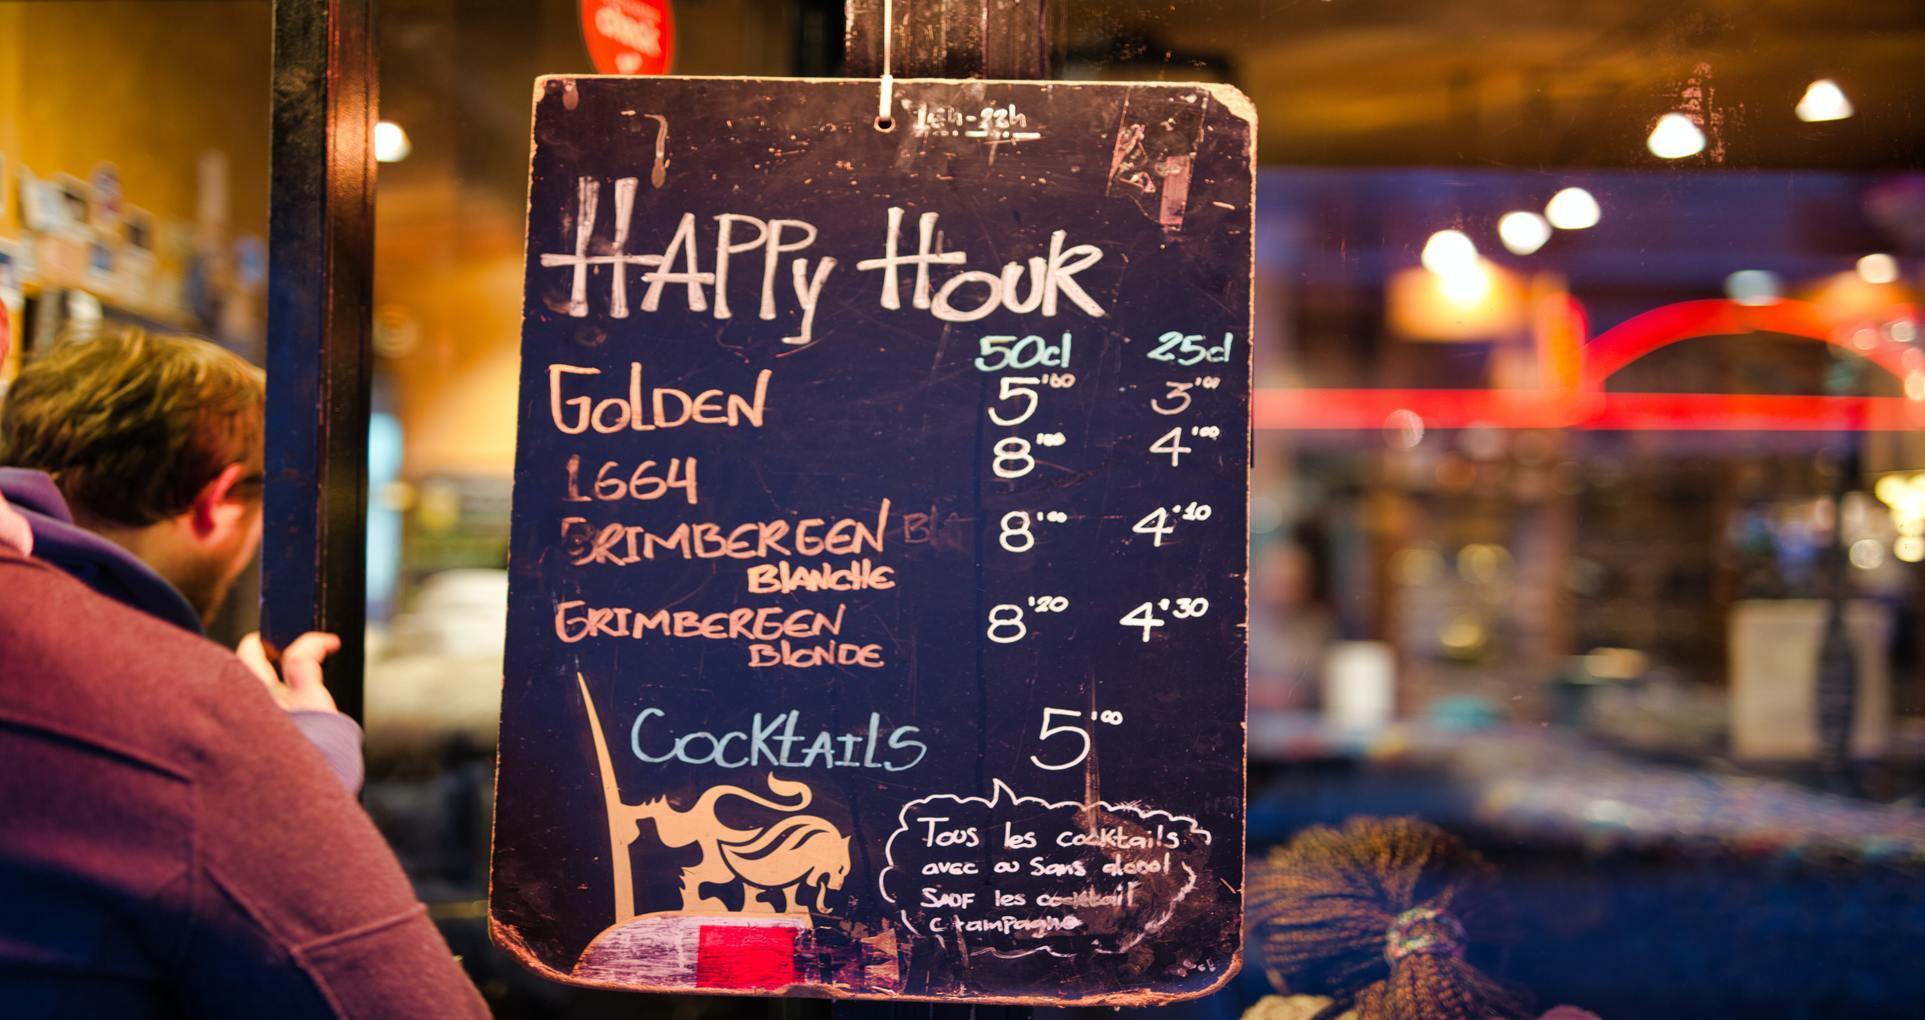 16h-22h
HAPPy HouR
50cl 25cl
GolDEN 5'00 3'00
1664 8'00 4'00
GRIMBERGEN 8'00 4'10
BLANCHE
GRIMBERGEN 8'20 4'30
BlONDE
COCKtAIlS 5'00
Tous les cocktails
avec ou Sans alcool
SAUF les cocktail
Champagne